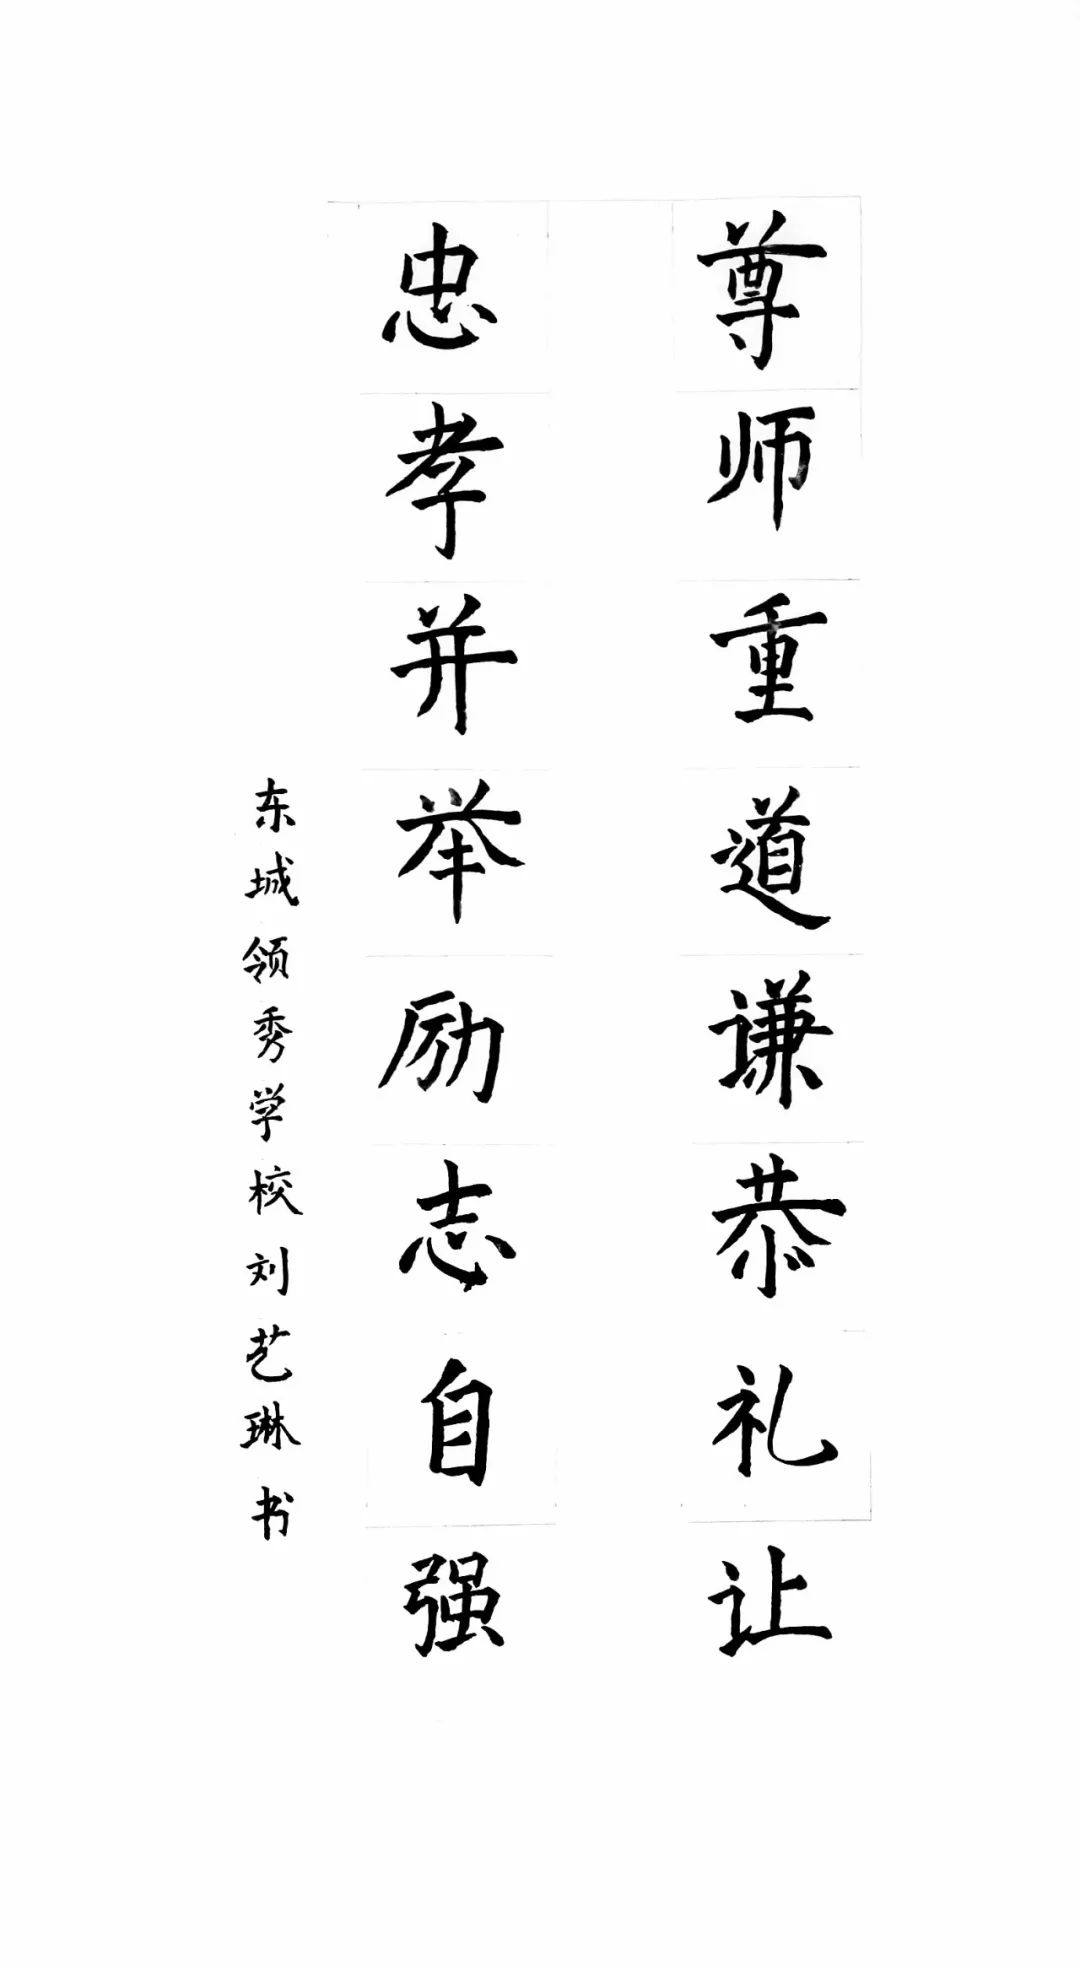 尊师重道谦恭礼让
忠孝并举励志自强
东城领秀学校刘艺琳书